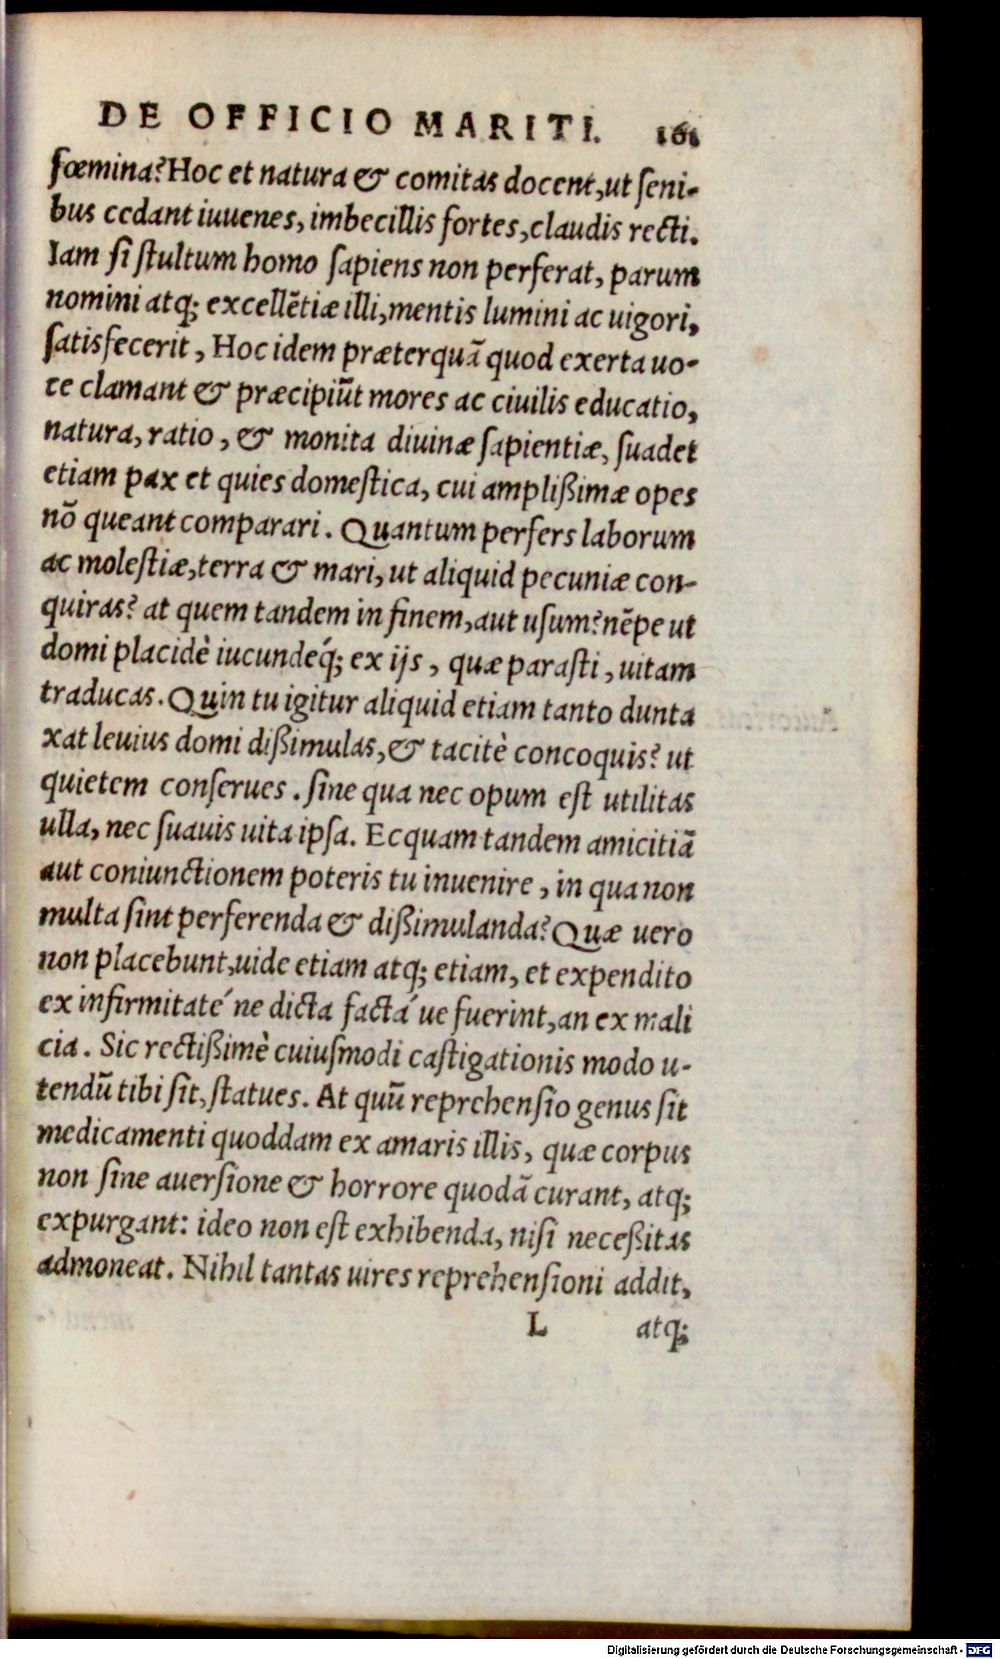 DE OFFICIO MARITI. 161
fœmina? Hoc et natura & comitas docent, ut ſeni-
bus cedant iuuenes, imbecillis fortes, claudis recti.
Iam ſi ſtultum homo ſapiens non perferat, parum
nomini atq; excellẽtiæ illi, mentis lumini ac uigori,
ſatisfecerit, Hoc idem præterquã quod exerta uo-
ce clamant & præcipiũt mores ac ciuilis educatio,
natura, ratio, & monita diuinæ ſapientiæ, ſuadet
etiam pax et quies domeſtica, cui ampliſſimæ opes
nõ queant comparari. Quantum perfers laborum
ac moleſtiæ, terra & mari, ut aliquid pecuniæ con-
quiras? at quem tandem in finem, aut uſum? nẽpe ut
domi placidè iucundeq́; ex ijs, quæ paraſti, uitam
traducas. Quin tu igitur aliquid etiam tanto dunta
xat leuius domi dißimulas, & tacitè concoquis? ut
quietem conſerues. ſine qua nec opum eſt utilitas
ulla, nec ſuauis uita ipſa. Ecquam tandem amicitiã
aut coniunctionem poteris tu inuenire, in qua non
multa ſint perferenda & dißimulanda? Quæ uero
non placebunt, uide etiam atq; etiam, et expendito
ex infirmitaté ne dicta factá ue fuerint, an ex mali
cia. Sic rectißimè cuiuſmodi caſtigationis modo u-
tendũ tibi ſit, ſtatues. At quũ reprehenſio genus ſit
medicamenti quoddam ex amaris illis, quæ corpus
non ſine auerſione & horrore quodã curant, atq;
expurgant: ideo non eſt exhibenda, niſi neceßitas
admoneat. Nihil tantas uires reprehenſioni addit,
L atq;
Digitalisierung gefördert durch die Deutsche Forschungsgemeinschaft - DFG